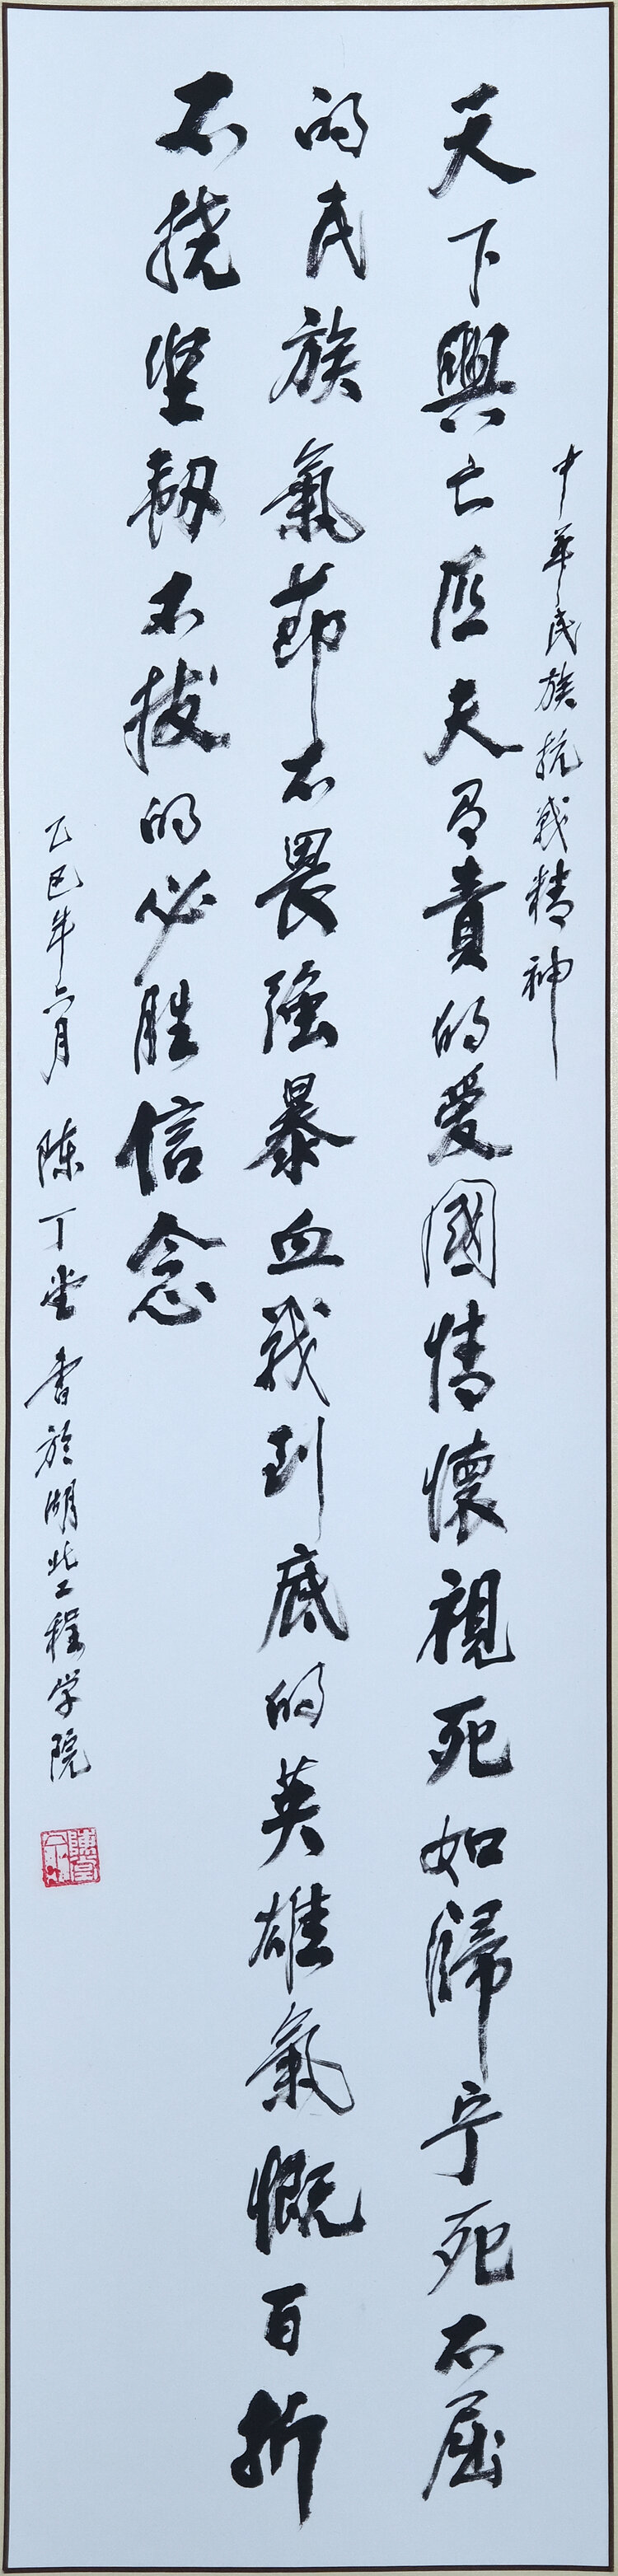 中華民族抗战精神
天下興亡匹夫有責的愛國情懷視死如歸宁死不屈
的民族氣節不畏強暴血战到底的英雄氣慨百折
不挠坚韧不拔的必胜信念
乙巳年六月 陈丁堂 書於湖北工程学院